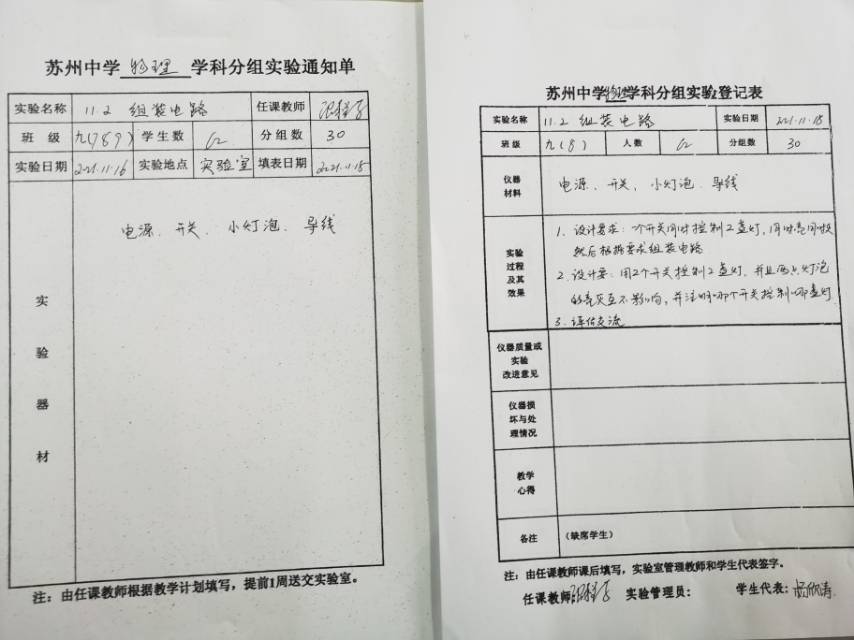 苏州中学 物理 学科分组实验通知单
实验名称 11.2 组装电路 任课教师
班 级 九(789) 学生数 62 分组数 30
实验日期 2021.11.16 实验地点 实验室 填表日期 2021.11.15
实验器材
电源、开关、小灯泡、导线
注：由任课教师根据教学计划填写，提前1周送交实验室。
苏州中学物理学科分组实验登记表
实验名称 11.2 组装电路 实验日期 221.11.18
班级 九(8) 人数 62 分组数 30
仪器材料 电源、开关、小灯泡、导线
实验过程及其效果
1、设计要求：一个开关同时控制2盏灯，同时亮同时
然后根据要求组装电路
2、设计要：用2个开关控制2盏灯，并且两只灯泡
的亮灭互不影响，并注明哪个开关控制哪盏灯
3、评估交流
仪器质量或实验改进意见
仪器损坏与处理情况
教学心得
备注 （缺席学生）
注：由任课教师课后填写，实验室管理教师和学生代表签字。
任课教师： 实验管理员： 学生代表：杨欣涛